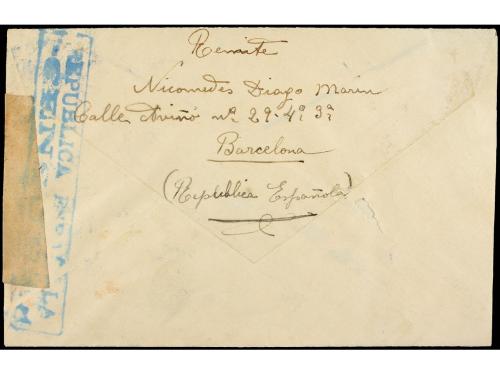 Remite
Nicomedes Diago Marin
Calle Aviñó nº 29-4º 3ª
Barcelona
(República Española)
REPUBLICA ESPAÑOLA
CENSURA